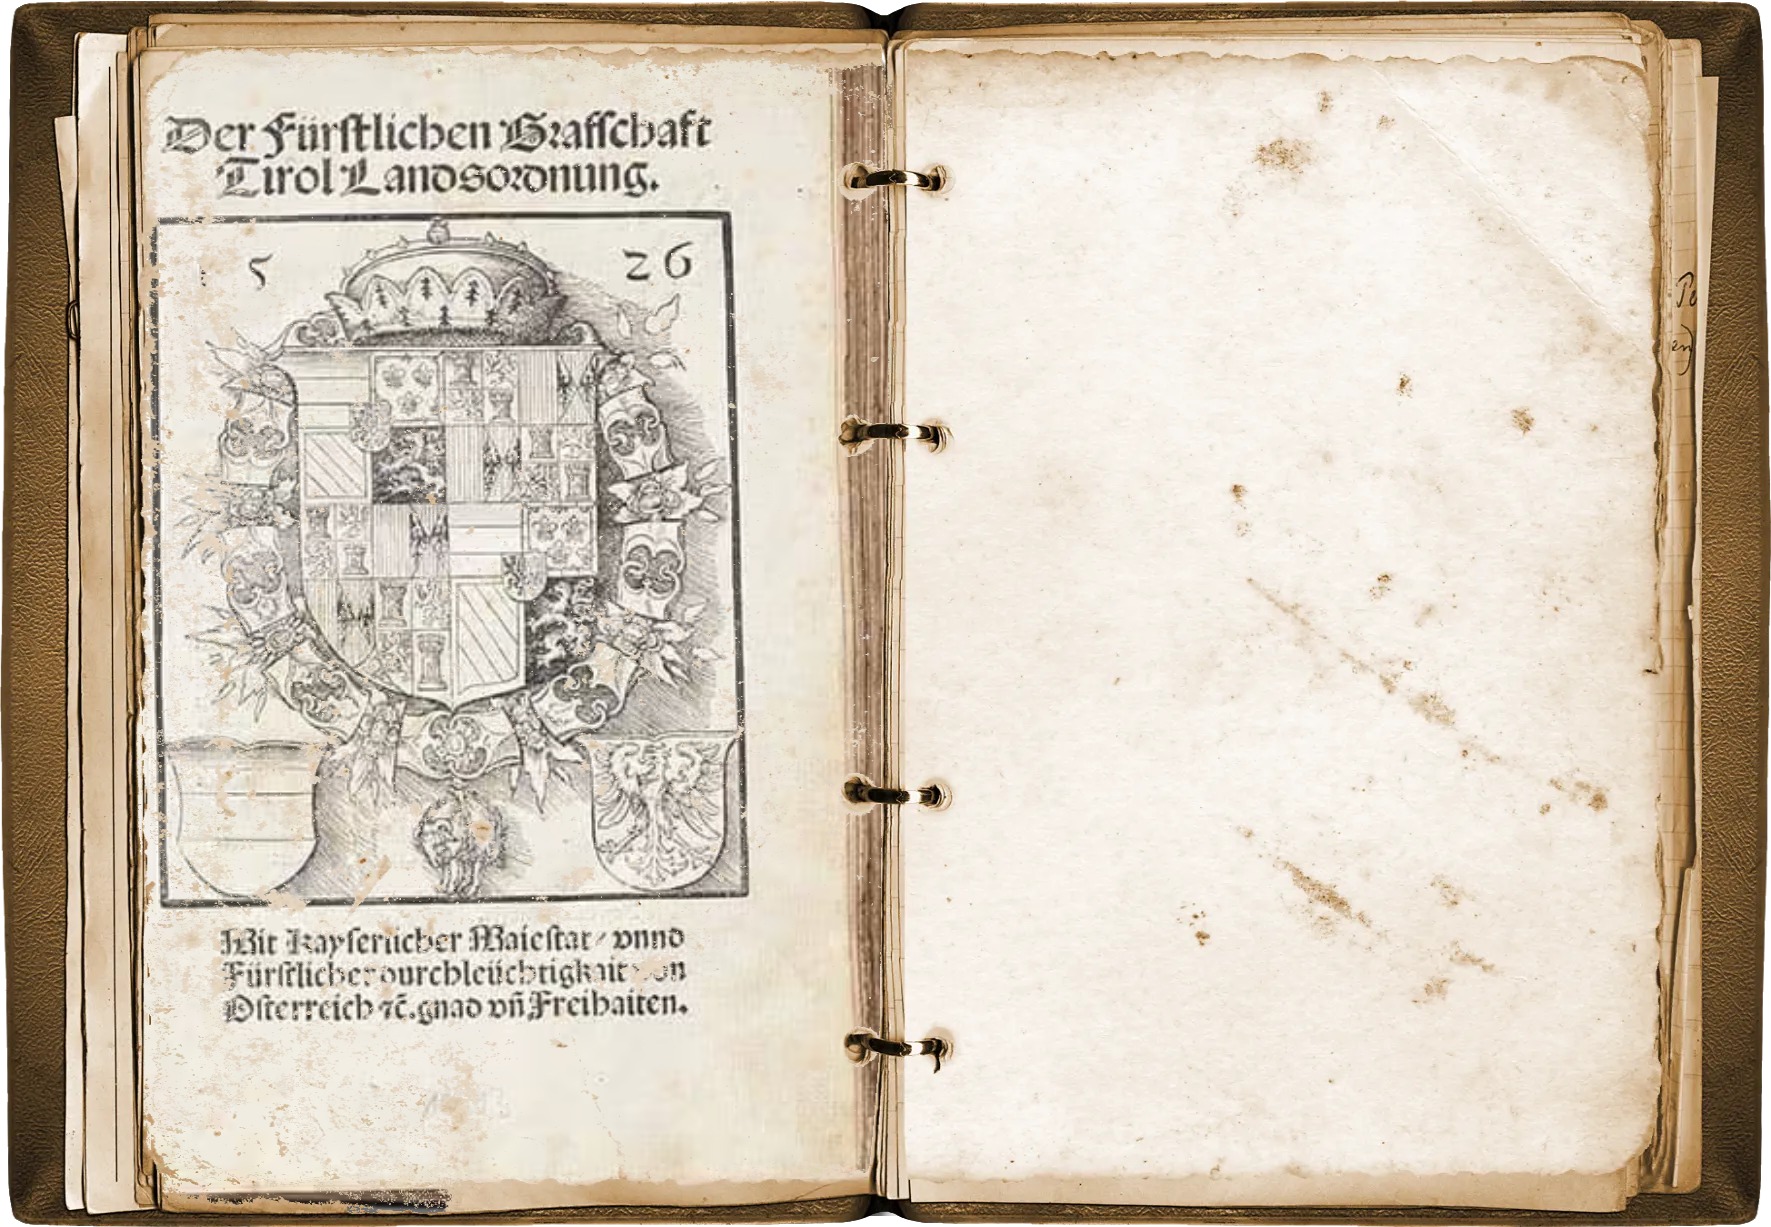 Der Fürstlichen Graffschaft
Tirol Landsordnung.
5 26
Mit Kayserlicher Maiestat / vnnd
Fürstlicher durchleüchtigkait von
Osterreich ꝛc̄. gnad vn̄ Freihaiten.